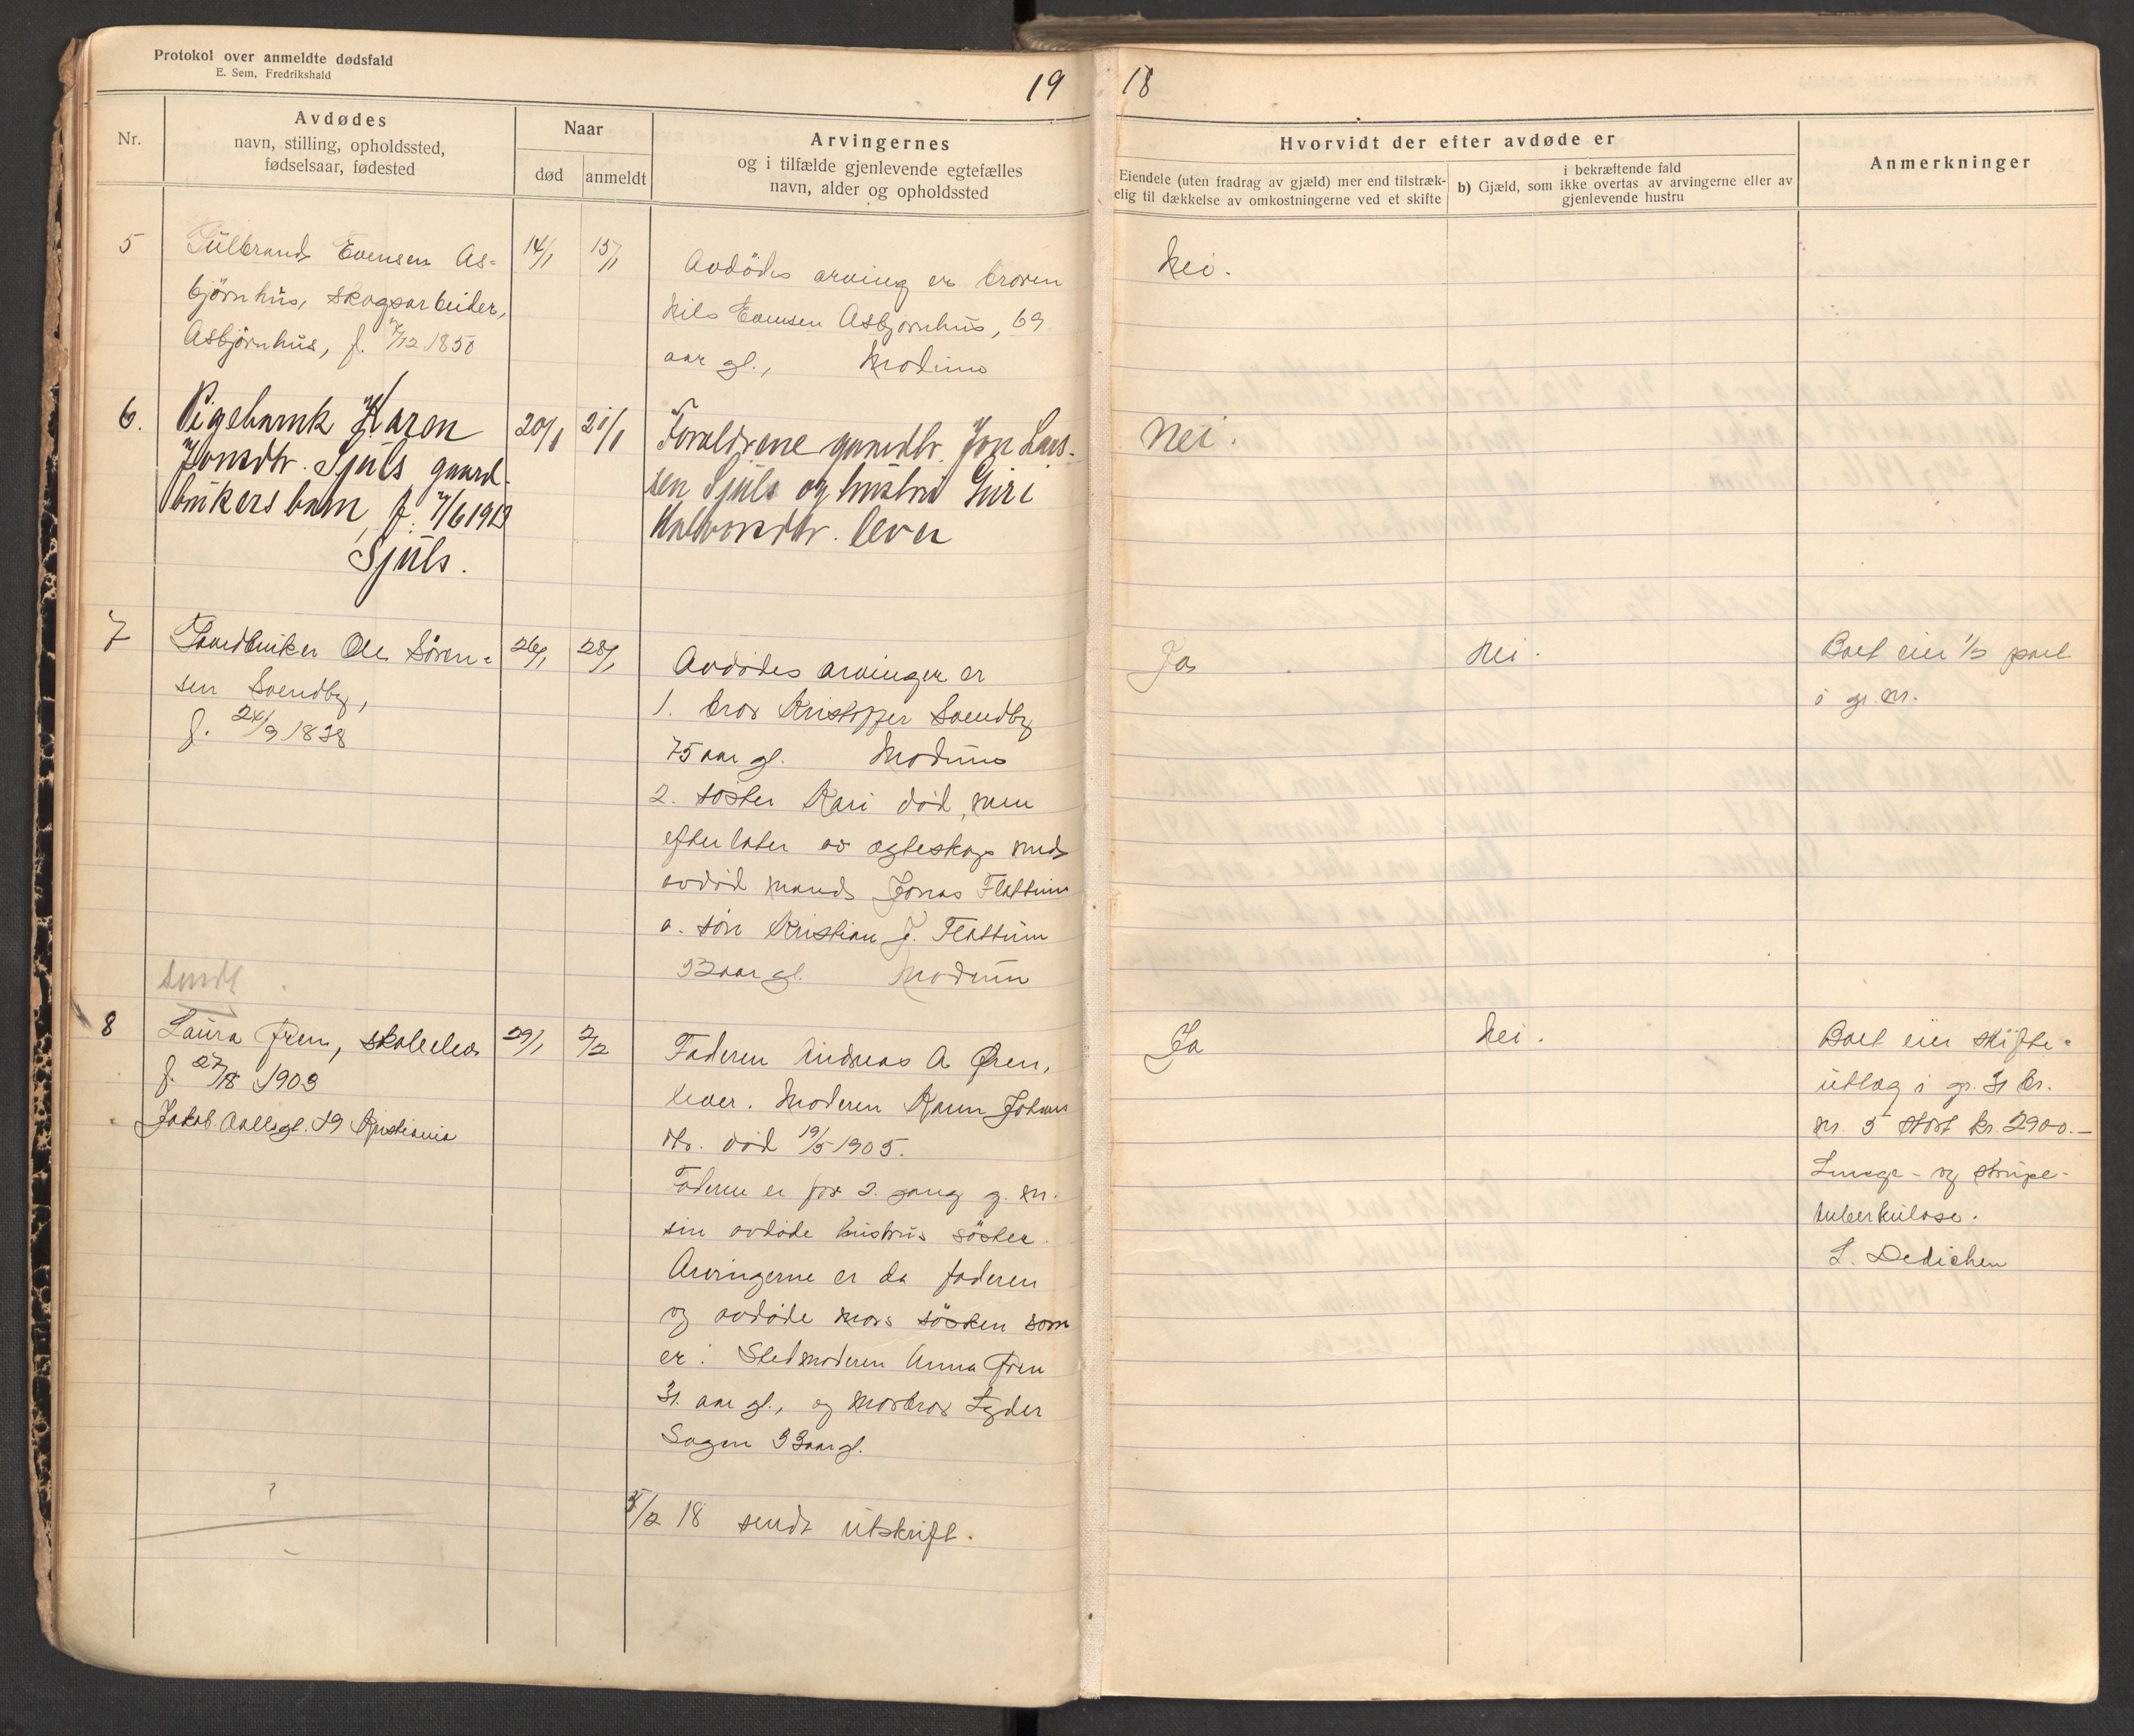 Protokol over anmeldte dødsfald
E. Sem, Fredrikshald
19
18
Nr.
Avdødes
navn, stilling, opholdssted,
fødselsaar, fødested
Naar
død
anmeldt
Arvingernes
og i tilfælde gjenlevende egtefælles
navn, alder og opholdssted
Hvorvidt der efter avdøde er
Eiendele (uten fradrag av gjæld) mer end tilstræk-
elig til dækkelse av omkostningerne ved et skifte
i bekræftende fald
b) Gjæld, som ikke overtas av arvingerne eller av
gjenlevende hustru
Anmerkninger
5
Gülbrand Evensen As-
bjørnhüs, skogsarbeider,
Asbjørnhüs, f. /12 1850
14/1
15/1
Avdødes arving er broren
Nils Evensen Asbjørnhüs, 69
aar gl., Modüm
Nei.
6.
Pigebarnk Karen
Jonsdtr. Sjüls gaard-
brükers barn, f. 7/6 1913
Sjüls.
20/1
21/1
Forældrene gaardbr. Jon Lars-
sen Sjüls og hüstrü Güri
Halvorsdtr. lever
Nei.
7
Gaardbrüker Ole Sören-
sen Svendby,
f. 24/9 1838
26/1
28/1
Avdødes arvinger er
1. bror Kristoffer Svendby
75 aar gl. Modüm
2. søster Kari død, som
efterlater av egteskap med
avdød mand Jonas Flattüm
a. søn Kristian J. Flattüm
32 aar gl. Modüm
Ja
Nei.
Boet eier 1/2 part
i gr. nr.
sendt
8
Laüra Øren, skoleelev
f. 27/8 1903
Jakob Aallsgt. 19 Kristiania
29/1
2/2
Faderen Andreas A. Øren,
lever. Moderen Karen Johans
dtr. død 19/5 1905.
Faderen er for 2. gang g. m.
sin avdøde hüstrüs søster.
Arvingerne er da faderen
og avdøde mors søsken som
er: Stedmoderen Anna Øren
31 aar gl., og morbror Lyder
Sagen 33 aar gl.
5/2 18 sendt ütskrift.
Ja
Nei.
Boet eier skifte-
ütlæg i gr. 31 br.
nr. 5 stort kr. 2900.-
Lunge- og strupe-
tuberkülose.
L. Dedichen